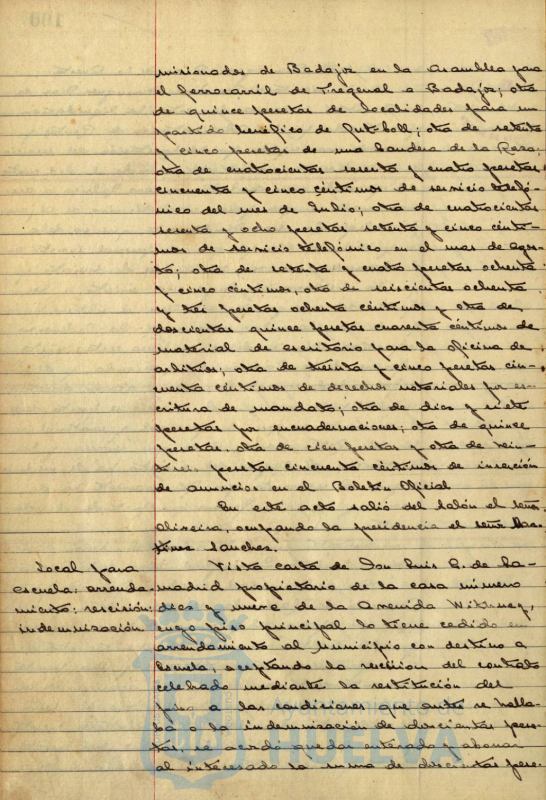 misionados de Badajoz en la Asamblea para
el ferrocarril de Fregenal a Badajoz; otra
de quince pesetas de localidades para un
partido benéfico de fut-boll; otra de setenta
y cinco pesetas de una bandera de la Raza;
otra de cuatrocientas sesenta y cuatro pesetas
cincuenta y cinco céntimos de servicio telefó-
nico del mes de Julio; otra de cuatrocientas
sesenta y ocho pesetas setenta y cinco cénti-
mos de servicio telefónico en el mes de Agos-
to; otra de setenta y cuatro pesetas ochenta
y cinco céntimos, otra de seiscientas ochenta
y tres pesetas ochenta céntimos y otra de
doscientas quince pesetas cuarenta céntimos de
material de escritorio para la oficina de
arbitrios; otra de treinta y cinco pesetas cin-
cuenta céntimos de derechos notariales por es-
critura de mandato; otra de diez y siete
pesetas por encuadernaciones; otra de quince
pesetas, otra de cien pesetas y otra de vein-
tiseis pesetas cincuenta céntimos de inserción
de anuncios en el Boletin Oficial
En este acto salió del salón el señor
Oliveira, ocupando la presidencia el señor Mar-
tinez Sanchez.
Local para
escuela: arrenda-
miento: rescisión:
indemnización.
Vista carta de Don Luis G. de La-
madrid propietario de la casa número
diez y nueve de la Avenida Withney,
cuyo piso principal lo tiene cedido en
arrendamiento al Municipio con destino a
Escuela, aceptando la rescision del contrato
celebrado mediante la restitución del
piso a las condiciones que antes se halla-
ba o la indemnización de doscientas pese-
tas, se acordó quedar enterado y abonar
al interesado la suma de doscientas pese-
HUELVA